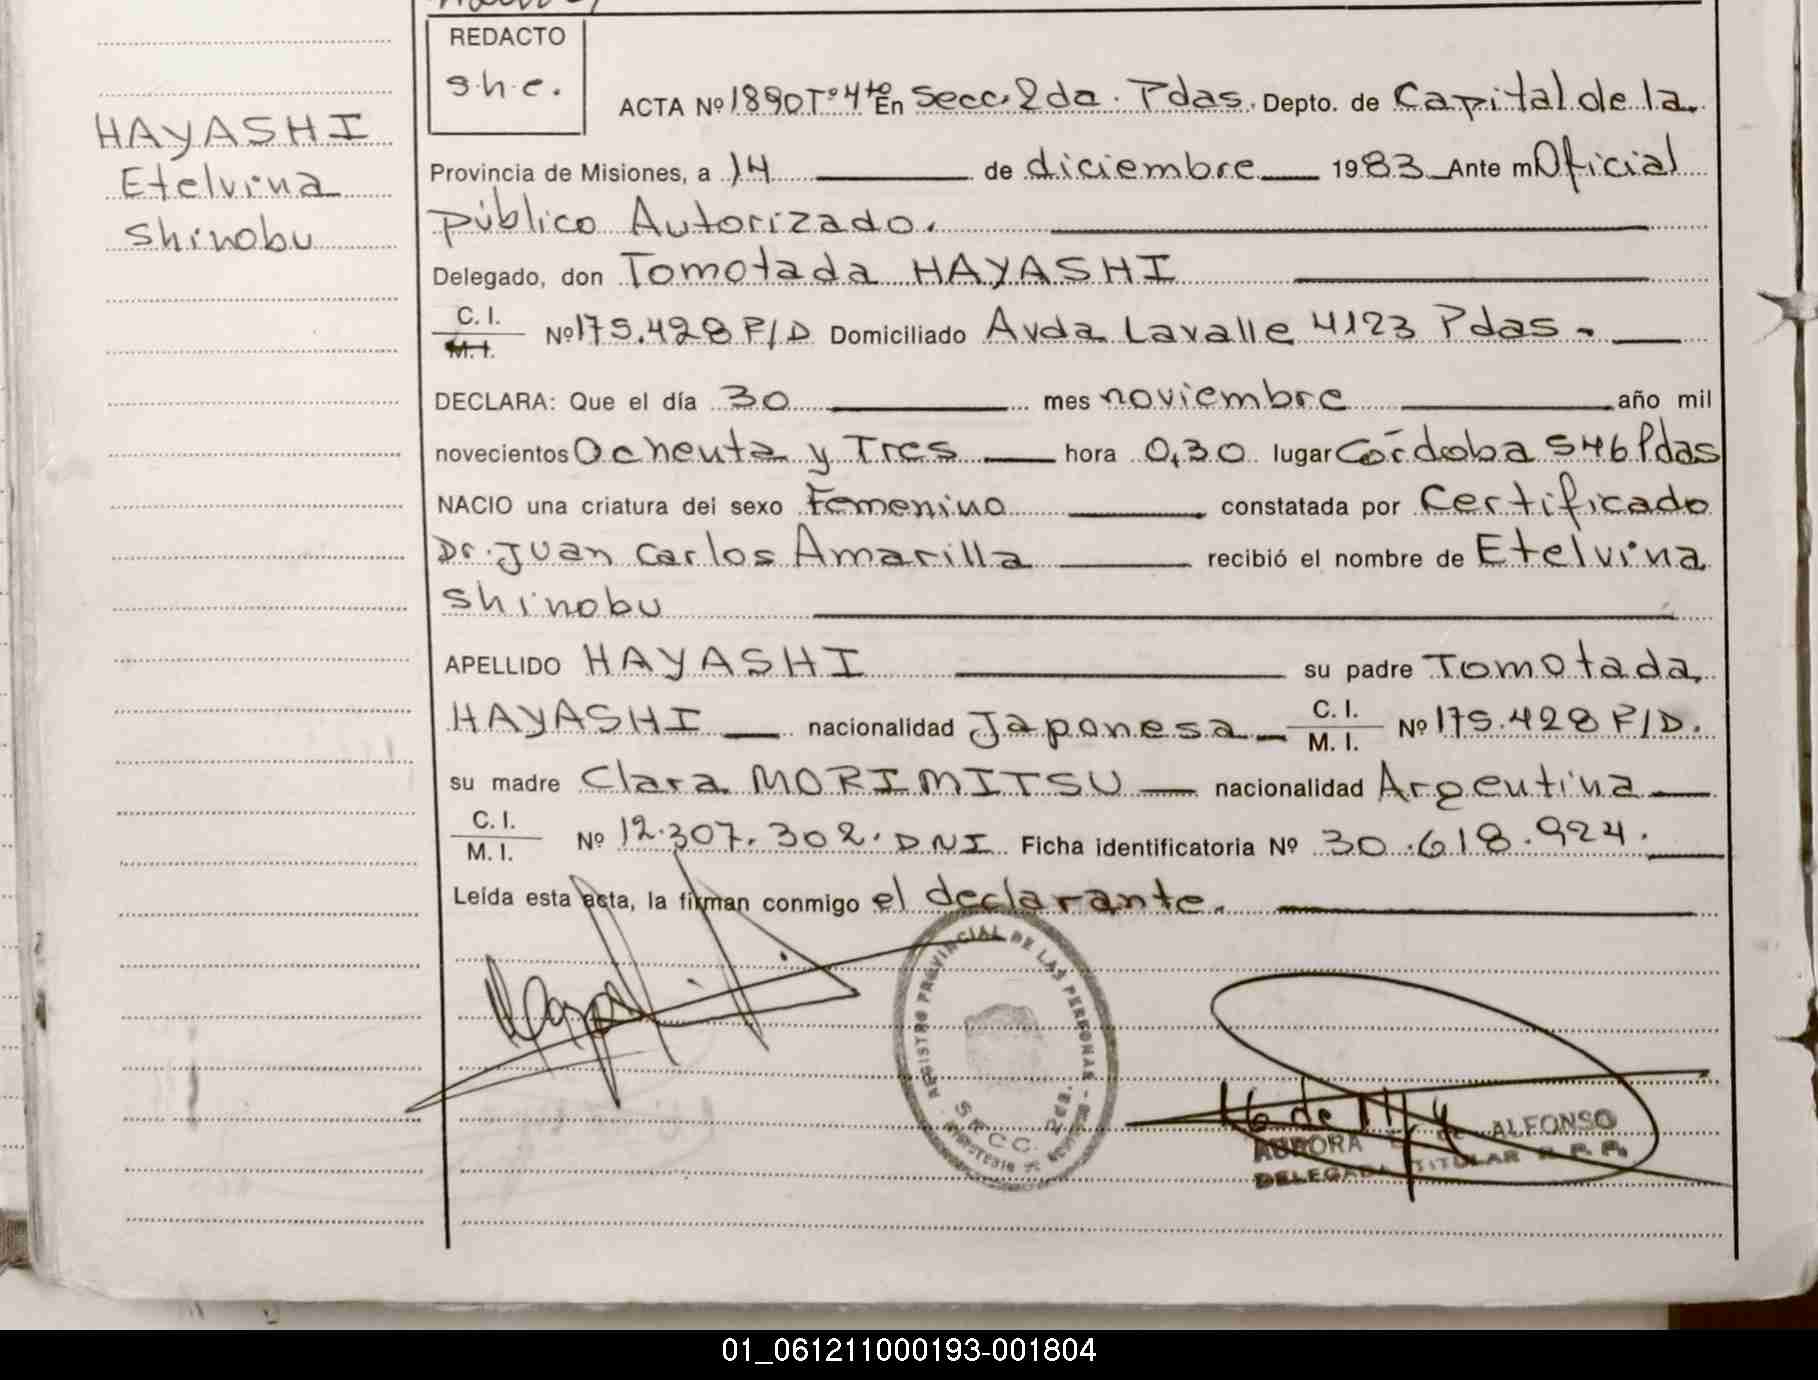 REDACTO
s.h.e.
ACTA Nº 1890 Tº 4to En Secc. 2da. Pdas. Depto. de Capital de la
HAYASHI
Etelvina
Shinobu
Provincia de Misiones, a 14 de diciembre 1983 Ante m Oficial
público Autorizado.
Delegado, don Tomotada HAYASHI
C. I.
M. I.
Nº 175.428 P/D Domiciliado Avda Lavalle 4123 Pdas -
DECLARA: Que el día 30 mes noviembre año mil
novecientos Ochenta y Tres hora 0,30 lugar Córdoba 546 Pdas
NACIO una criatura del sexo Femenino constatada por Certificado
Dr. Juan Carlos Amarilla recibió el nombre de Etelvina
Shinobu
APELLIDO HAYASHI su padre Tomotada
HAYASHI nacionalidad Japonesa C. I.
M. I. Nº 175.428 P/D.
su madre Clara MORIMITSU nacionalidad Argentina
C. I.
M. I. Nº 12.307.302. DNI Ficha identificatoria Nº 30.618.924.
Leída esta acta, la firman conmigo el declarante.
REGISTRO PROVINCIAL DE LAS PERSONAS
SECC. 2da.
AURORA ALFONSO
DELEGADA TITULAR R. P. P.
01_061211000193-001804